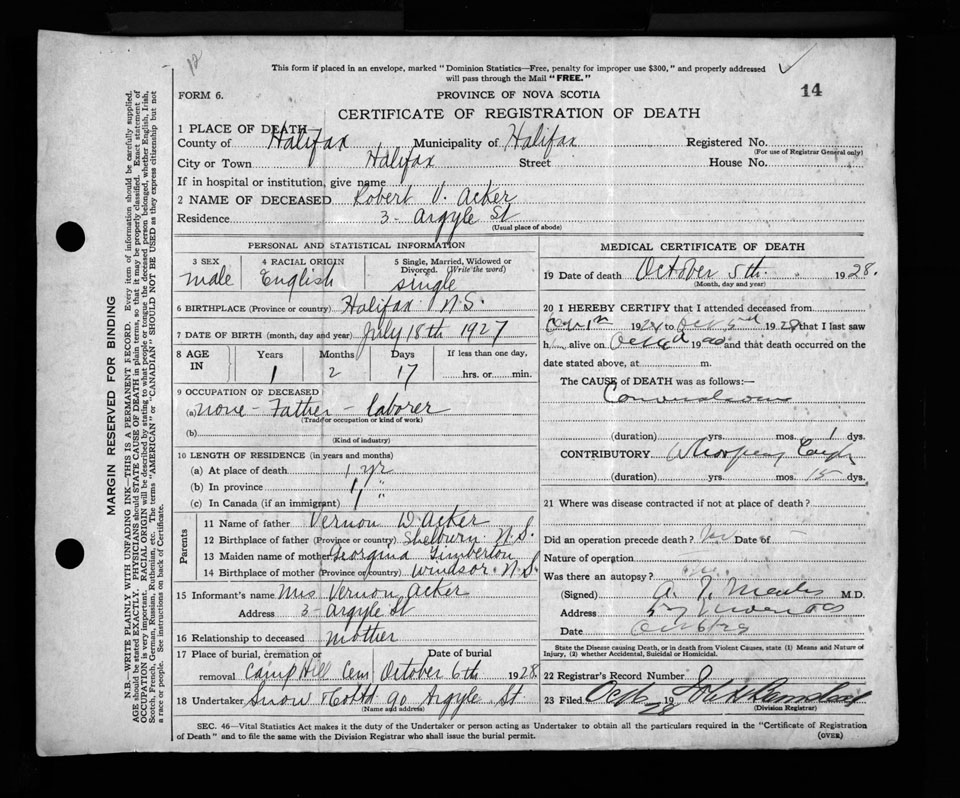 This form if placed in an envelope, marked "Dominion Statistics—Free, penalty for improper use $300," and properly addressed
will pass through the Mail "FREE."
14
FORM 6.
PROVINCE OF NOVA SCOTIA
CERTIFICATE OF REGISTRATION OF DEATH
1 PLACE OF DEATH
County of Halifax Municipality of Halifax Registered No.
(For use of Registrar General only)
City or Town Halifax Street House No.
If in hospital or institution, give name
2 NAME OF DECEASED Robert V. Acker
Residence 3 - Argyle St
(Usual place of abode)
PERSONAL AND STATISTICAL INFORMATION
3 SEX 4 RACIAL ORIGIN 5 Single, Married, Widowed or
Divorced. (Write the word)
male English single
6 BIRTHPLACE (Province or country) Halifax N.S.
7 DATE OF BIRTH (month, day and year) July 18th 1927
8 AGE IN Years Months Days If less than one day,
1 2 17 hrs. or min.
9 OCCUPATION OF DECEASED
(a) none - Father - laborer
(Trade or occupation or kind of work)
(b)
(Kind of industry)
10 LENGTH OF RESIDENCE (in years and months)
(a) At place of death 1 yr
(b) In province 1 "
(c) In Canada (if an immigrant) 1 "
Parents
11 Name of father Vernon D. Acker
12 Birthplace of father (Province or country) Shelburn N.S.
13 Maiden name of mother Georgina Timberton
14 Birthplace of mother (Province or country) Windsor N.S.
15 Informant's name Mrs Vernon Acker
Address 3 - Argyle St
16 Relationship to deceased mother
17 Place of burial, cremation or removal Date of burial
Camp Hill Cem October 6th 1928
18 Undertaker Snow & Co Ltd 90 Argyle St
(Name and address)
MEDICAL CERTIFICATE OF DEATH
19 Date of death October 5th 1928.
(Month, day and year)
20 I HEREBY CERTIFY that I attended deceased from
1928 to Oct 5th 1928 that I last saw
h alive on 19 and that death occurred on the
date stated above, at m.
The CAUSE of DEATH was as follows:—
Convulsions
(duration) yrs. mos. 1 dys.
CONTRIBUTORY Whooping Cough
(duration) yrs. mos. 15 dys.
21 Where was disease contracted if not at place of death?
Did an operation precede death? no Date of -
Nature of operation
Was there an autopsy? no.
(Signed) M.D.
Address
Date
State the Disease causing Death, or in death from Violent Causes, state (1) Means and Nature of
Injury, (2) whether Accidental, Suicidal or Homicidal.
22 Registrar's Record Number
23 Filed Oct 6 1928
(Division Registrar)
SEC. 46—Vital Statistics Act makes it the duty of the Undertaker or person acting as Undertaker to obtain all the particulars required in the "Certificate of Registration
of Death" and to file the same with the Division Registrar who shall issue the burial permit.
(OVER)
MARGIN RESERVED FOR BINDING
N.B.—WRITE PLAINLY WITH UNFADING INK—THIS IS A PERMANENT RECORD. Every item of information should be carefully supplied.
AGE should be stated EXACTLY. PHYSICIANS should STATE CAUSE OF DEATH in plain terms, so that it may be properly classified. Exact statement of
OCCUPATION is very important. RACIAL ORIGIN will be described by stating to what people or tongue the deceased person belonged, whether English, Irish,
Scotch, French, German, Russian, Ruthenian, etc. The terms "AMERICAN" or "CANADIAN" SHOULD NOT BE USED as they express citizenship but not
a race or people. See instructions on back of Certificate.